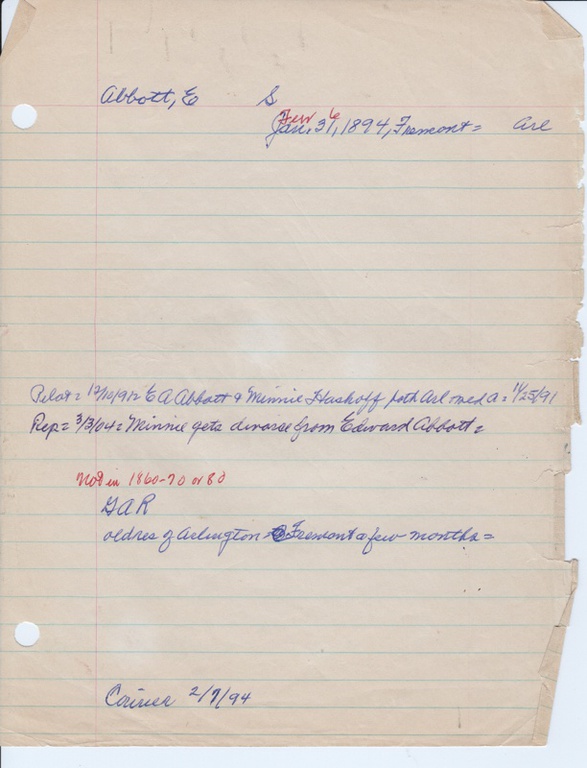 Abbott, E S
Few 6
Jan. 31, 1894, Fremont = Arl
Pilot = 12/10/91 E A Abbott & Minnie Haskoff both Arl med a = 11/25/91
Rep = 3/3/04 = Minnie gets divorse from Edward Abbott =
Not in 1860-70 or 80
GAR
oldres of Arlington = Fremont a few months =
Courier 2/7/94